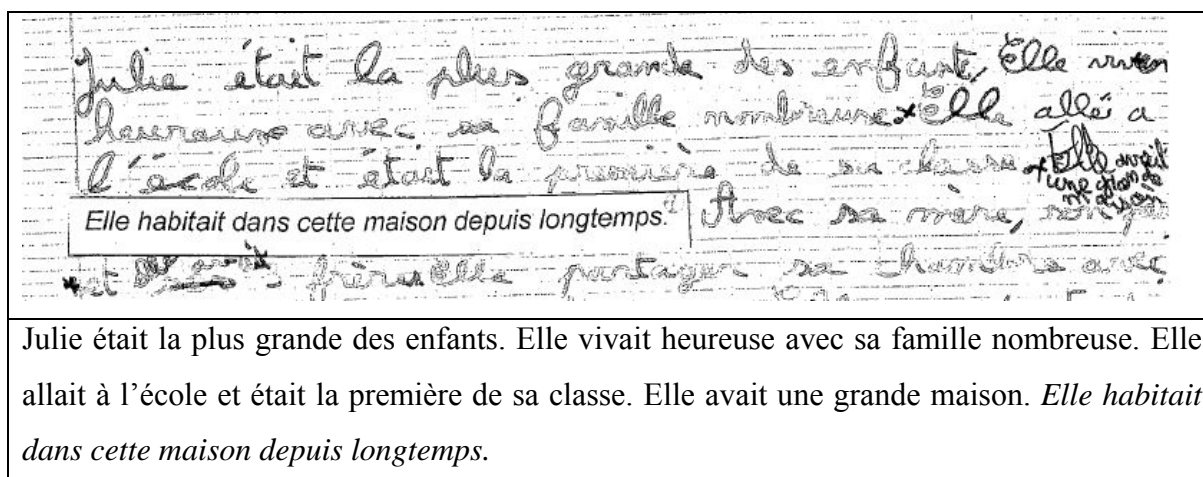 Julie était la plus grande des enfant, Elle
heureuse avec sa famille nombreuse Elle allé a
l'école et était la première de sa classe Elle avait
une grande
maison
Elle habitait dans cette maison depuis longtemps. Avec sa mère, son
et frères Elle partager sa chambre avec
Julie était la plus grande des enfants. Elle vivait heureuse avec sa famille nombreuse. Elle
allait à l’école et était la première de sa classe. Elle avait une grande maison. Elle habitait
dans cette maison depuis longtemps.